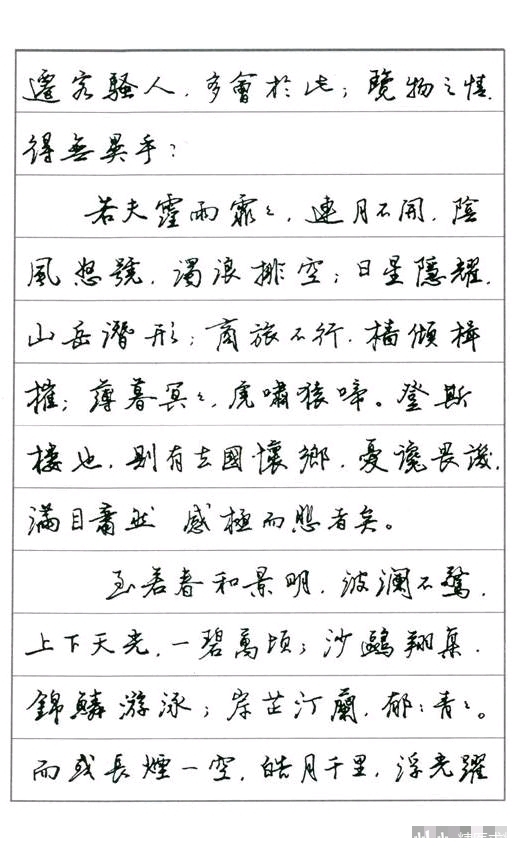 遷客騷人，多會於此；覽物之情，
得無異乎？
若夫霪雨霏〻，連月不開，陰
風怒號，濁浪排空；日星隱耀，
山岳潛形；商旅不行，檣傾楫
摧；薄暮冥〻，虎嘯猿啼。登斯
樓也，則有去國懷鄉，憂讒畏譏，
滿目蕭然 感極而悲者矣。
至若春和景明，波瀾不驚，
上下天光，一碧萬頃；沙鷗翔集，
錦鱗游泳；岸芷汀蘭，郁〻青〻。
而或長煙一空，皓月千里，浮光躍